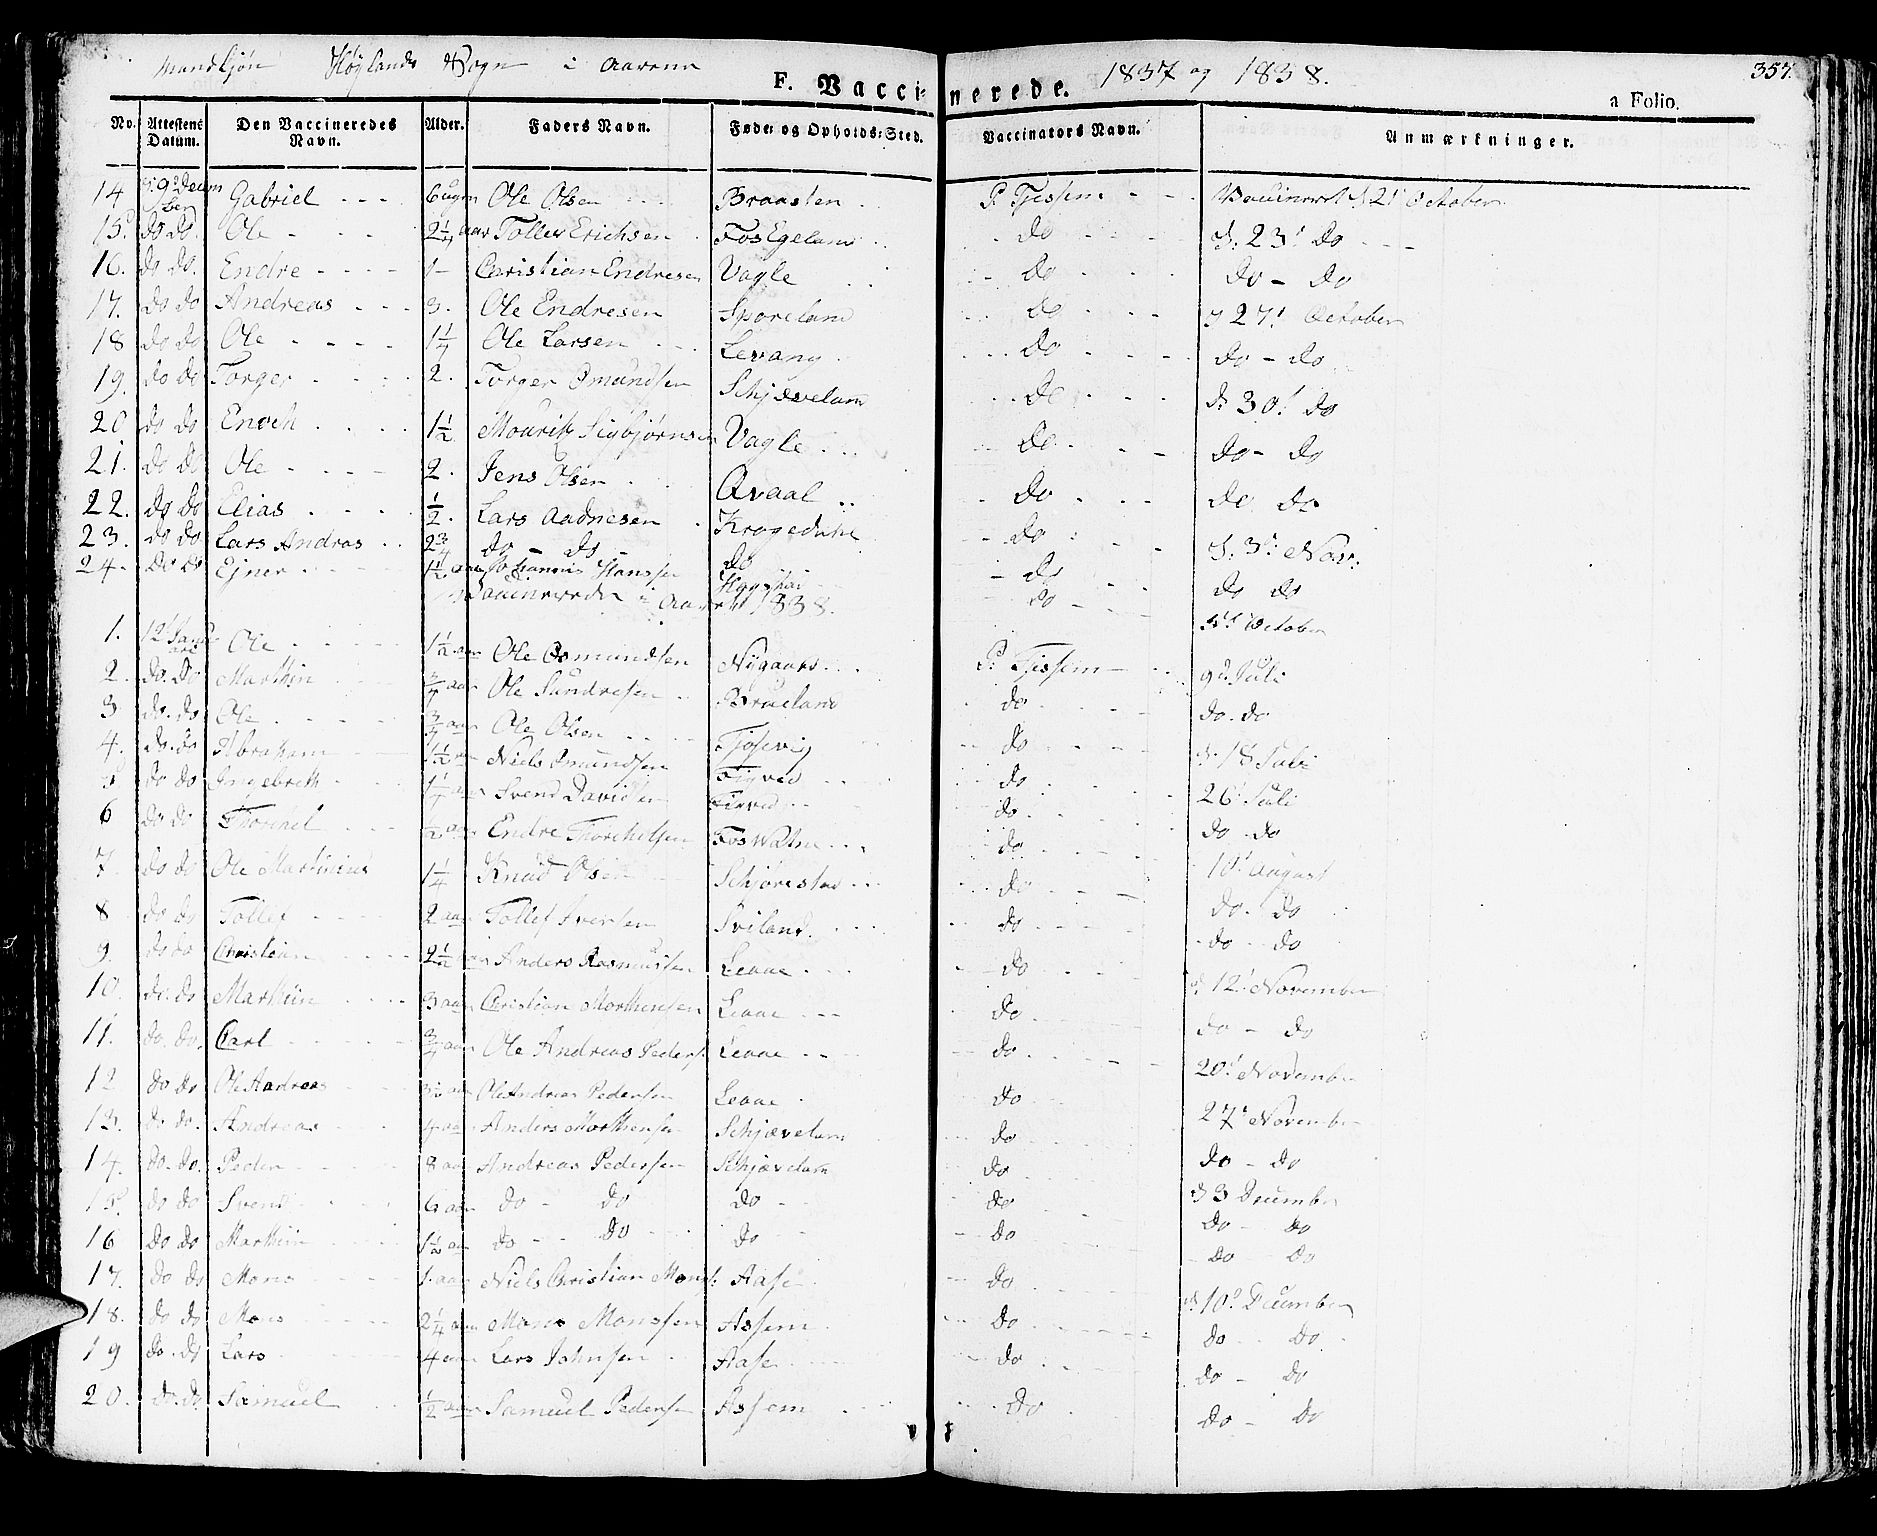 Mandkjøn Høylands Sogn i Aarene 1837 og 1838. 357.
F. Vaccinerede. a Folio.
No. Attestens Datum. Den Vaccineredes Navn. Alder. Faders Navn. Føde- og Opholds-Sted. Vaccinators Navn. Anmærkninger.
14 Gabriel 6 Ole Olsen Braasten P. Tjessem Vaccineret d. 21' October
15. do do. Ole 2 1/4 aar Tollev Erichsen FosEgeland do d. 23' do
16. do do. Endre 1 Christian Endresen Vagle do do - do
17. do do Andreas 3. Ole Endresen Skoreland do d 27' October
18 do do Ole 1 1/4 Ole Larsen Levang do do - do
19. do do Torger 2. Torger Omundsen Schjævelam do d. 30' do
20 do do Enoch 1 1/2 Mouritz Sigbjørnsen Vagle do do - do
21. do do Ole 2. Jens Olsen Qvaal do do do
22. do do Elias 1/2. Lars Aadnesen Krogedahl do d. 3' Nov:
23. do do Lars Andreas 2 3/4 do - do do do do do
24. do do Ejner 1 1/2 aar Johannis Hanssen do October
Vaccinerede i Aaret 1838.
1. 12' Januar Ole 1 1/2 aar Ole Osmundsen Nygaard P. Tjessem 9d Juli
2. do. do Marthin 3/4 aar Ole Sundresen Brueland do do. do
3 do. do Ole 3/4 aar Ole Olsen Tjosevig do d. 18 Juli
4. do. do Abraham 1 1/2 aar Niels Omundsen do 26' Juli
5 do do Ingebreth Svend Davidsen do do do
6 do do Thorchel 1/2 aar Endre Thorchelsen FosVatne do 10' August
7 do do Ole Martinius 1 1/4 Knud Olsen Schjørestad do do. do
8 do do Tollef 2 aar Tollef Iversen Sviland do do do
9. do do Christian 2 1/2 aar Anders Rasmussen Leaae do d. 12' November
10. do. do Marthin 3 aar Christian Morthensen Leaae do do - do
11. do. do. Carl 3/4 aar Ole Andreas Peders: Leaae do 20' November
12 do do Ole Andreas Ole Andreas Pedersen Leaae do 27' November
13. do do. Andreas 4 aar Anders Morthensen Schjævelam do do - do
14. do. do. Peder 8 aar Andreas Pedersen Schjævelam do d 3 December
15. do do Svend 6 aar do - do do do do do
16 do do Marthin 1 1/2 aar do - do do do do do
17. do do Mons 1. aar Niels Christian Mons: Aase do d. 10' December
18. do do Mons 2 1/4 aar Mons Monssen Assem do do do
19 do. do Lars 4 aar Lars Johnsen Aase do do - do
20. do. do Samuel 1/2 aar Samuel Pedersen Assem do do - do